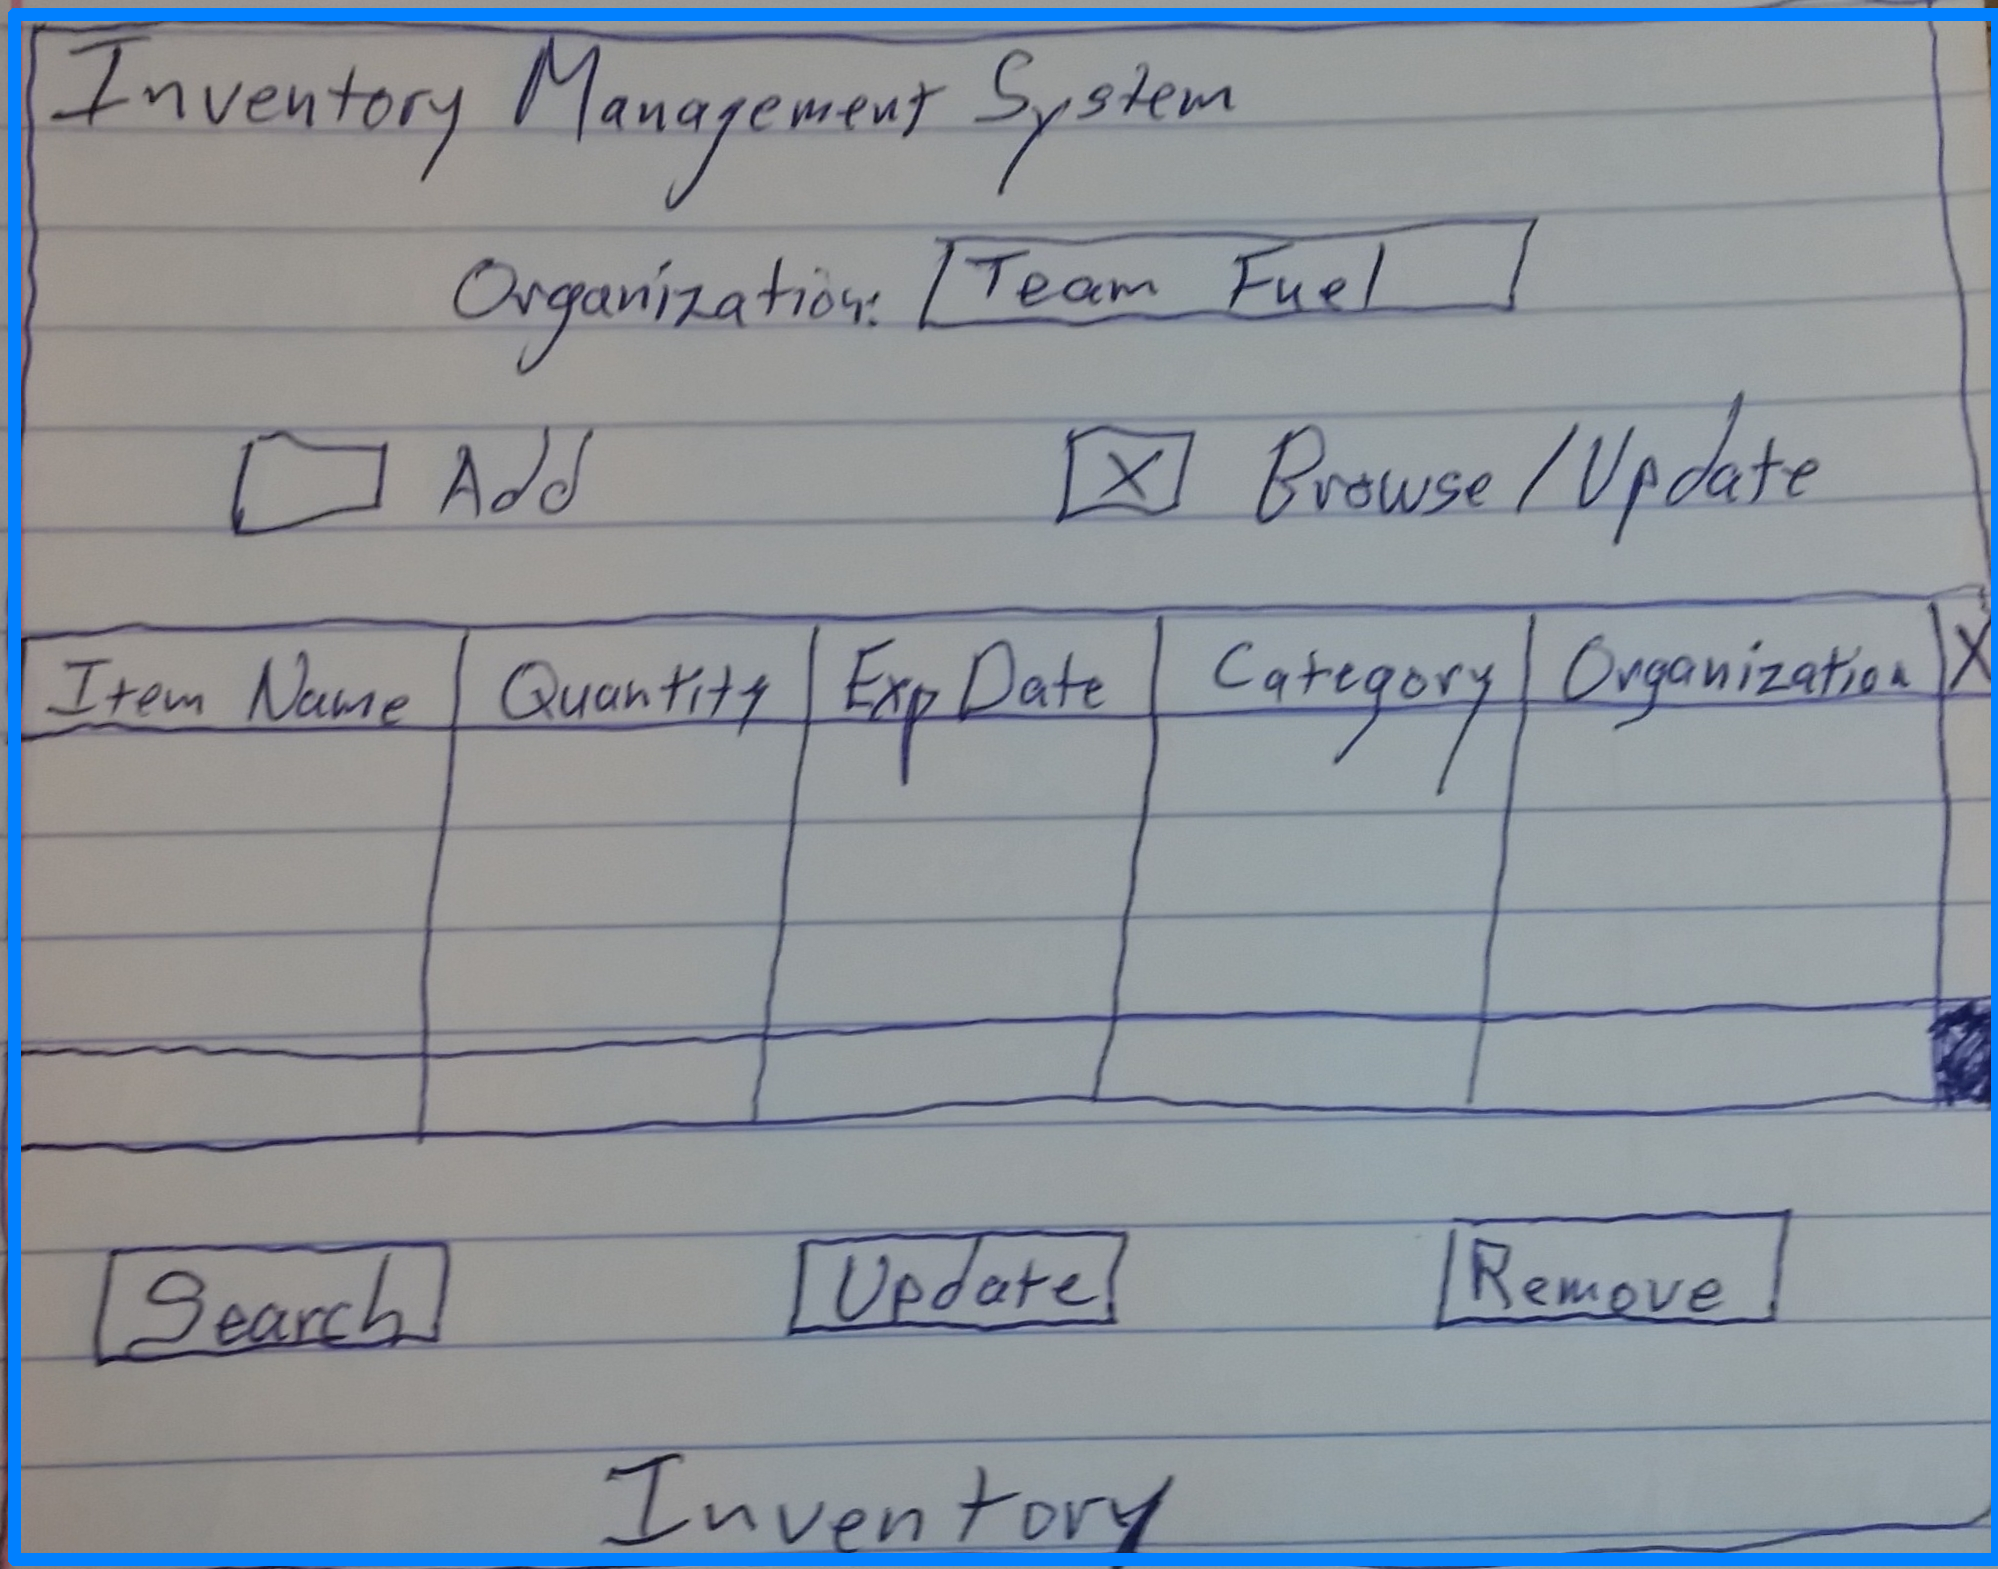 Inventory Management System
Organization: Team Fuel
Add X Browse/Update
Item Name Quantity Exp Date Category Organization X
Search Update Remove
Inventory